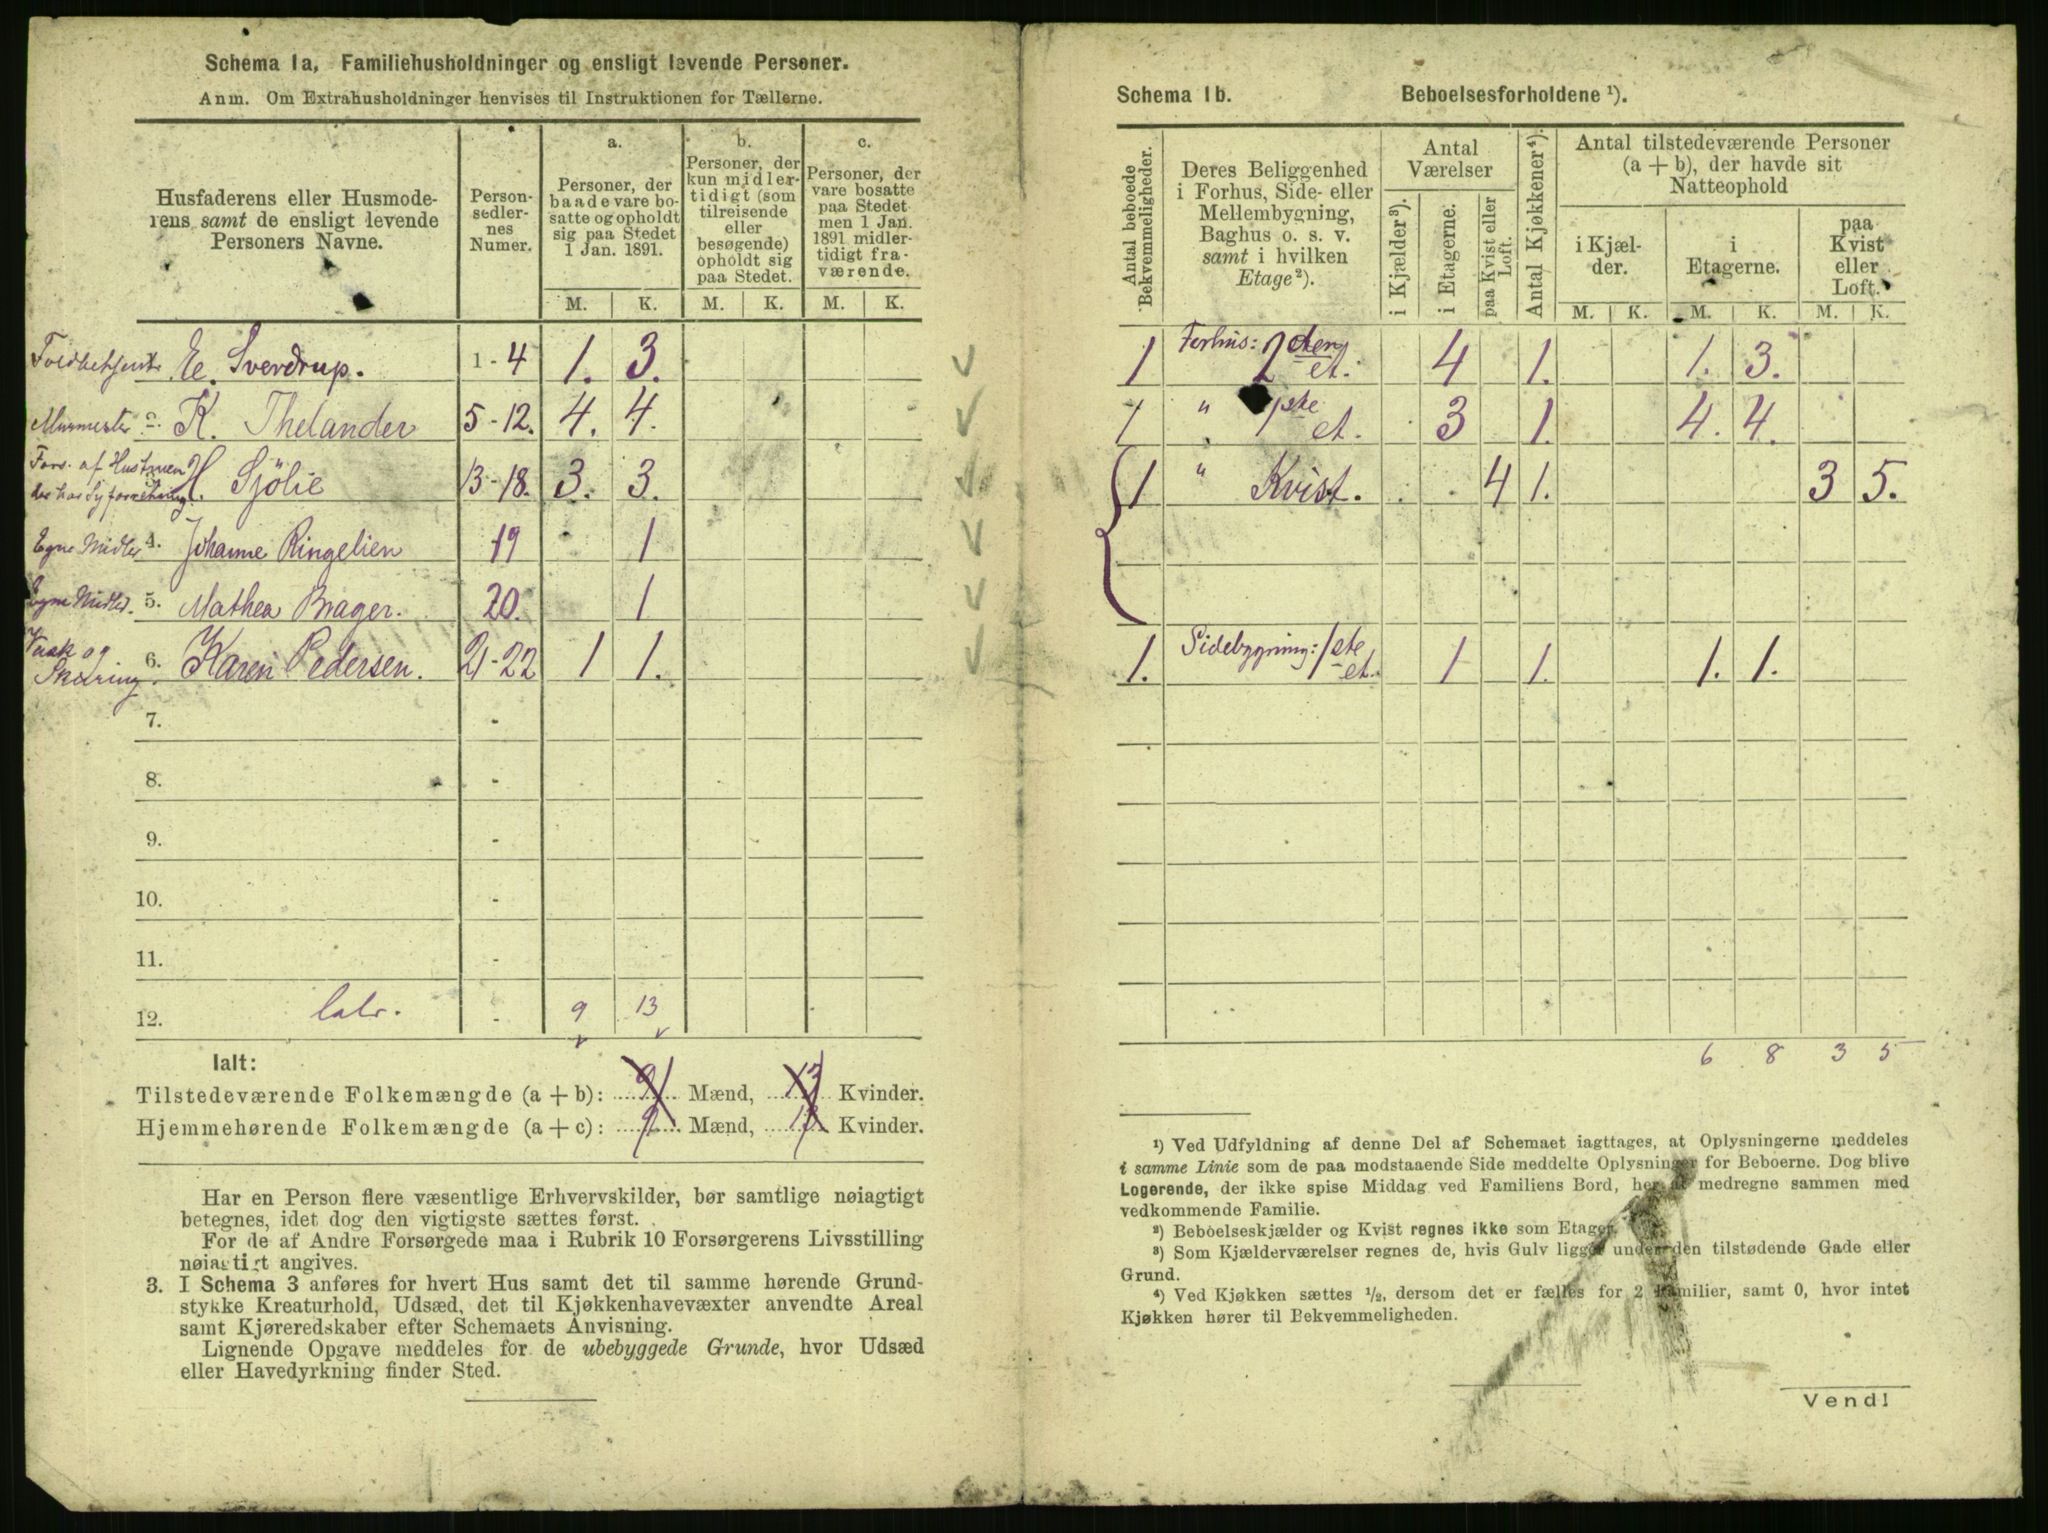 Schema 1a, Familiehusholdninger og ensligt levende Personer.
Anm. Om Extrahusholdninger henvises til Instruktionen for Tællerne.
Husfaderens eller Husmode-
rens samt de ensligt levende
Personers Navne.
Person-
sedler-
nes
Numer.
a.
Personer, der
baade vare bo-
satte og opholdt
sig paa Stedet
1 Jan. 1891.
b.
Personer, der
kun midler-
tidigt (som
tilreisende
eller
besøgende)
opholdt sig
paa Stedet.
c.
Personer, der
vare bosatte
paa Stedet
men 1 Jan.
1891 midler-
tidigt fra-
værende.
M. K. M. K. M. K.
Toldbetjent E. Sverdrup. 1-4 1. 3.
Murmester K. Thelander 5-12. 4. 4.
Fors. af Hustruen
der har Syforretning. H. Sjölie 13-18. 3. 3.
Egne Midler 4. Johanne Ringelien 19 1
Egne Midler. 5. Mathea Brager. 20. 1
Vask og
Skuring. 6. Karen Pedersen. 21-22 1 1.
7. -
8. -
9. -
10. -
11. -
12. Ialt. - 9 13
Ialt:
Tilstedeværende Folkemængde (a + b): 9 Mænd, 13 Kvinder.
Hjemmehørende Folkemængde (a + c): 9 Mænd, 13 Kvinder.
Har en Person flere væsentlige Erhvervskilder, bør samtlige nøiagtigt
betegnes, idet dog den vigtigste sættes først.
For de af Andre Forsørgede maa i Rubrik 10 Forsørgerens Livsstilling
nøiagtigt angives.
3. I Schema 3 anføres for hvert Hus samt det til samme hørende Grund-
stykke Kreaturhold, Udsæd, det til Kjøkkenhavevæxter anvendte Areal
samt Kjøreredskaber efter Schemaets Anvisning.
Lignende Opgave meddeles for de ubebyggede Grunde, hvor Udsæd
eller Havedyrkning finder Sted.
Schema 1b. Beboelsesforholdene ¹).
Antal beboede
Bekvemmeligheder.
Deres Beliggenhed
i Forhus, Side- eller
Mellembygning,
Baghus o. s. v.
samt i hvilken
Etage ²).
Antal
Værelser
i Kjælder ³).
i Etagerne.
paa Kvist eller
Loft.
Antal Kjøkkener ⁴).
Antal tilstedeværende Personer
(a + b), der havde sit
Natteophold
i Kjæl-
der.
i
Etagerne.
paa
Kvist
eller
Loft.
M. K. M. K. M. K.
1 Forhus: 2den et. 4 1. 1. 3.
1 " 1ste et. 3 1. 4. 4.
1 " Kvist. 4 1. 3 5.
1. Sidebygning: 1ste et. 1 1. 1. 1.
6 8 3 5
¹) Ved Udfyldning af denne Del af Schemaet iagttages, at Oplysningerne meddeles
i samme Linie som de paa modstaaende Side meddelte Oplysninger for Beboerne. Dog blive
Logerende, der ikke spise Middag ved Familiens Bord, her at medregne sammen med
vedkommende Familie.
²) Beboelseskjælder og Kvist regnes ikke som Etager.
³) Som Kjælderværelser regnes de, hvis Gulv ligger under den tilstødende Gade eller
Grund.
⁴) Ved Kjøkken sættes ½, dersom det er fælles for 2 Familier, samt 0, hvor intet
Kjøkken hører til Bekvemmeligheden.
Vend!